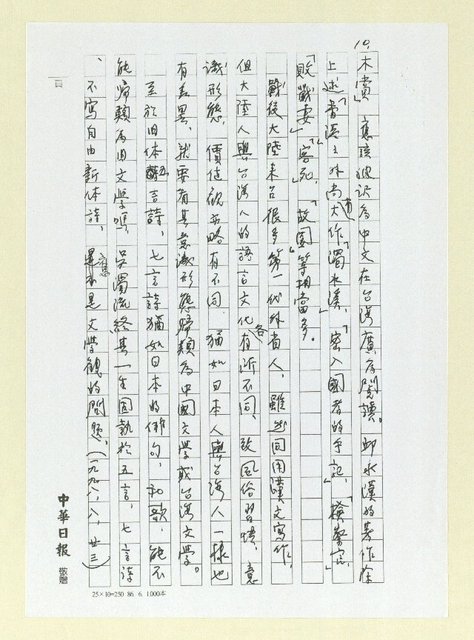 10.
木賞」應該被訳為中文在台湾廣為閱讀。邱永漢的著作除
上述「香港」之外尚有大作「濁水溪」、「密入國者的手記」、「檢察官」、
「敗戰妻」、「客死」、「故園」等相當多。
戰後大陸來台很多第一代外省人，雖然同用漢文寫作，
但大陸人與台湾人的語言文化各有所不同，故風俗習慣，意
識形態，價值觀亦略有不同，猶如日本人與台湾人一樣也
有差異，就要看其意識形態歸類為中國文學或台湾文學。
至於旧体詩五言詩，七言詩猶如日本的俳句，和歌，能不
能歸類為旧文學嗎，吳濁流終其一生固執於五言，七言詩
、不寫自由新体詩，應是文學觀的問題。（一九九八、八、廿三）
中華日報 敬贈
25×10=250 86. 6. 1000本